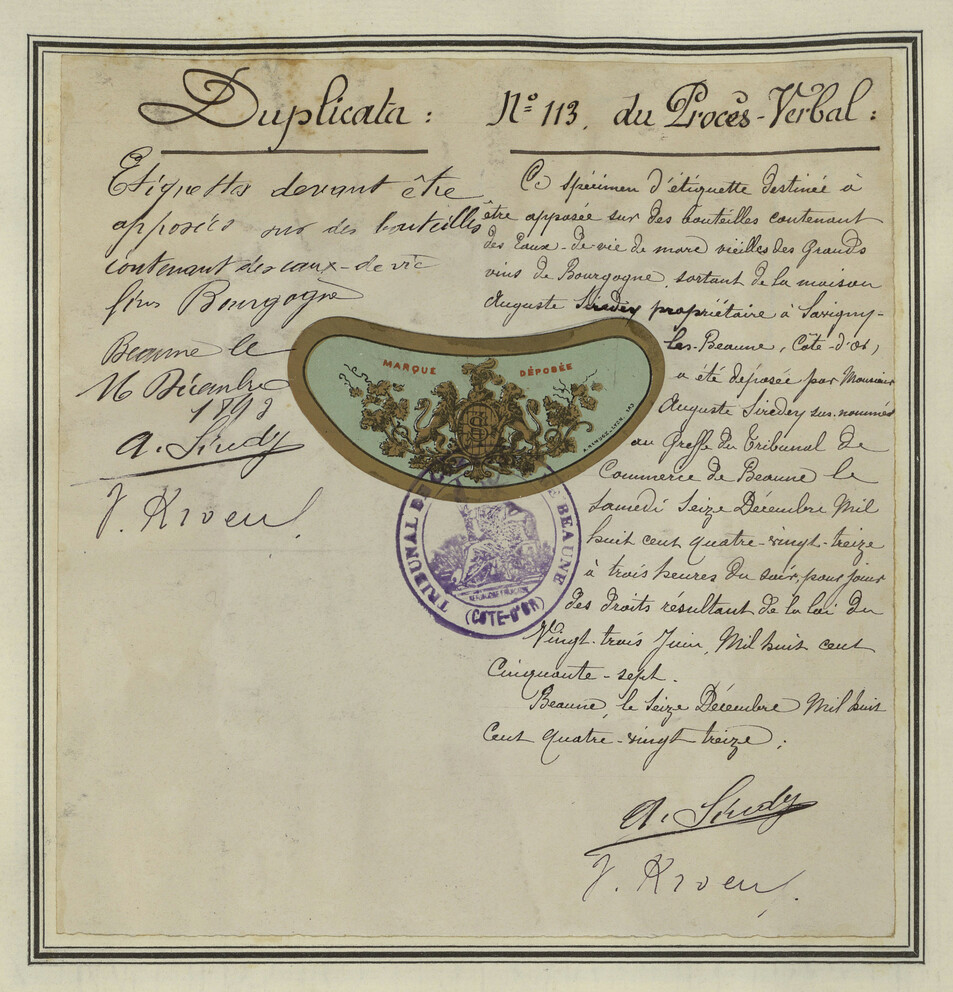 Duplicata :
Etiquette devant être
apposée sur des bouteilles
contenant des eaux-de-vie
fins Bourgogne
Beaune le
16 Décembre
1893
A. Siredy
J. Kroen
N° 113. du Procès-Verbal :
Ce spécimen d'étiquette destinée à
être apposée sur des bouteilles contenant
des Eaux-de-vie de marc vieilles des Grands
vins de Bourgogne, sortant de la maison
Auguste Siredey propriétaire à Savigny-
les-Beaune, (Côte-d'Or)
a été déposée par Monsieur
Auguste Siredey sus-nommé
au Greffe du Tribunal de
Commerce de Beaune le
Samedi Seize Décembre Mil
huit cent quatre-vingt-treize
à trois heures du soir, pour jouir
des droits résultant de la loi du
Vingt-trois Juin, Mil huit cent
Cinquante-sept.
Beaune, le Seize Décembre Mil huit
Cent quatre-vingt treize.
A. Siredy
J. Kroen
MARQUE DÉPOSÉE
TRIBUNAL DE BEAUNE
RÉPUBLIQUE FRANÇAISE
(CÔTE-D'OR)